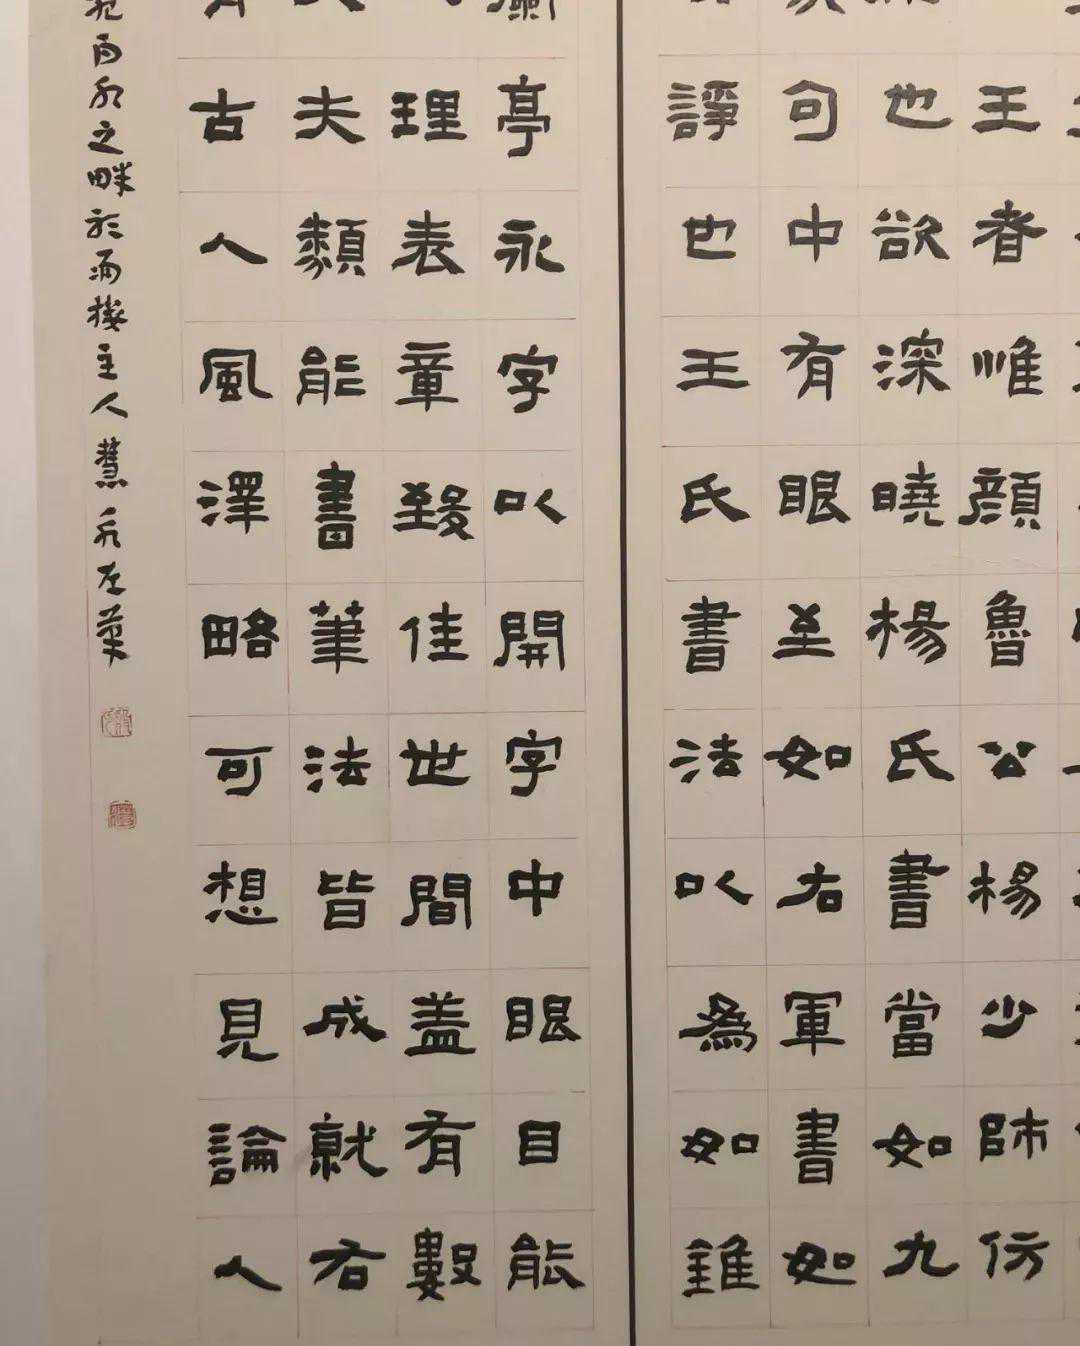 王者惟顏魯公楊少師仿
也欲深曉楊氏書當如九
句中有眼至如右軍書如
諍也王氏書法以為如錐
亭永字以開字中眼目能
理表章致佳世間盖有數
夫類能書筆法皆成就右
古人風澤略可想見論人
之畔於樓主人慧左筆